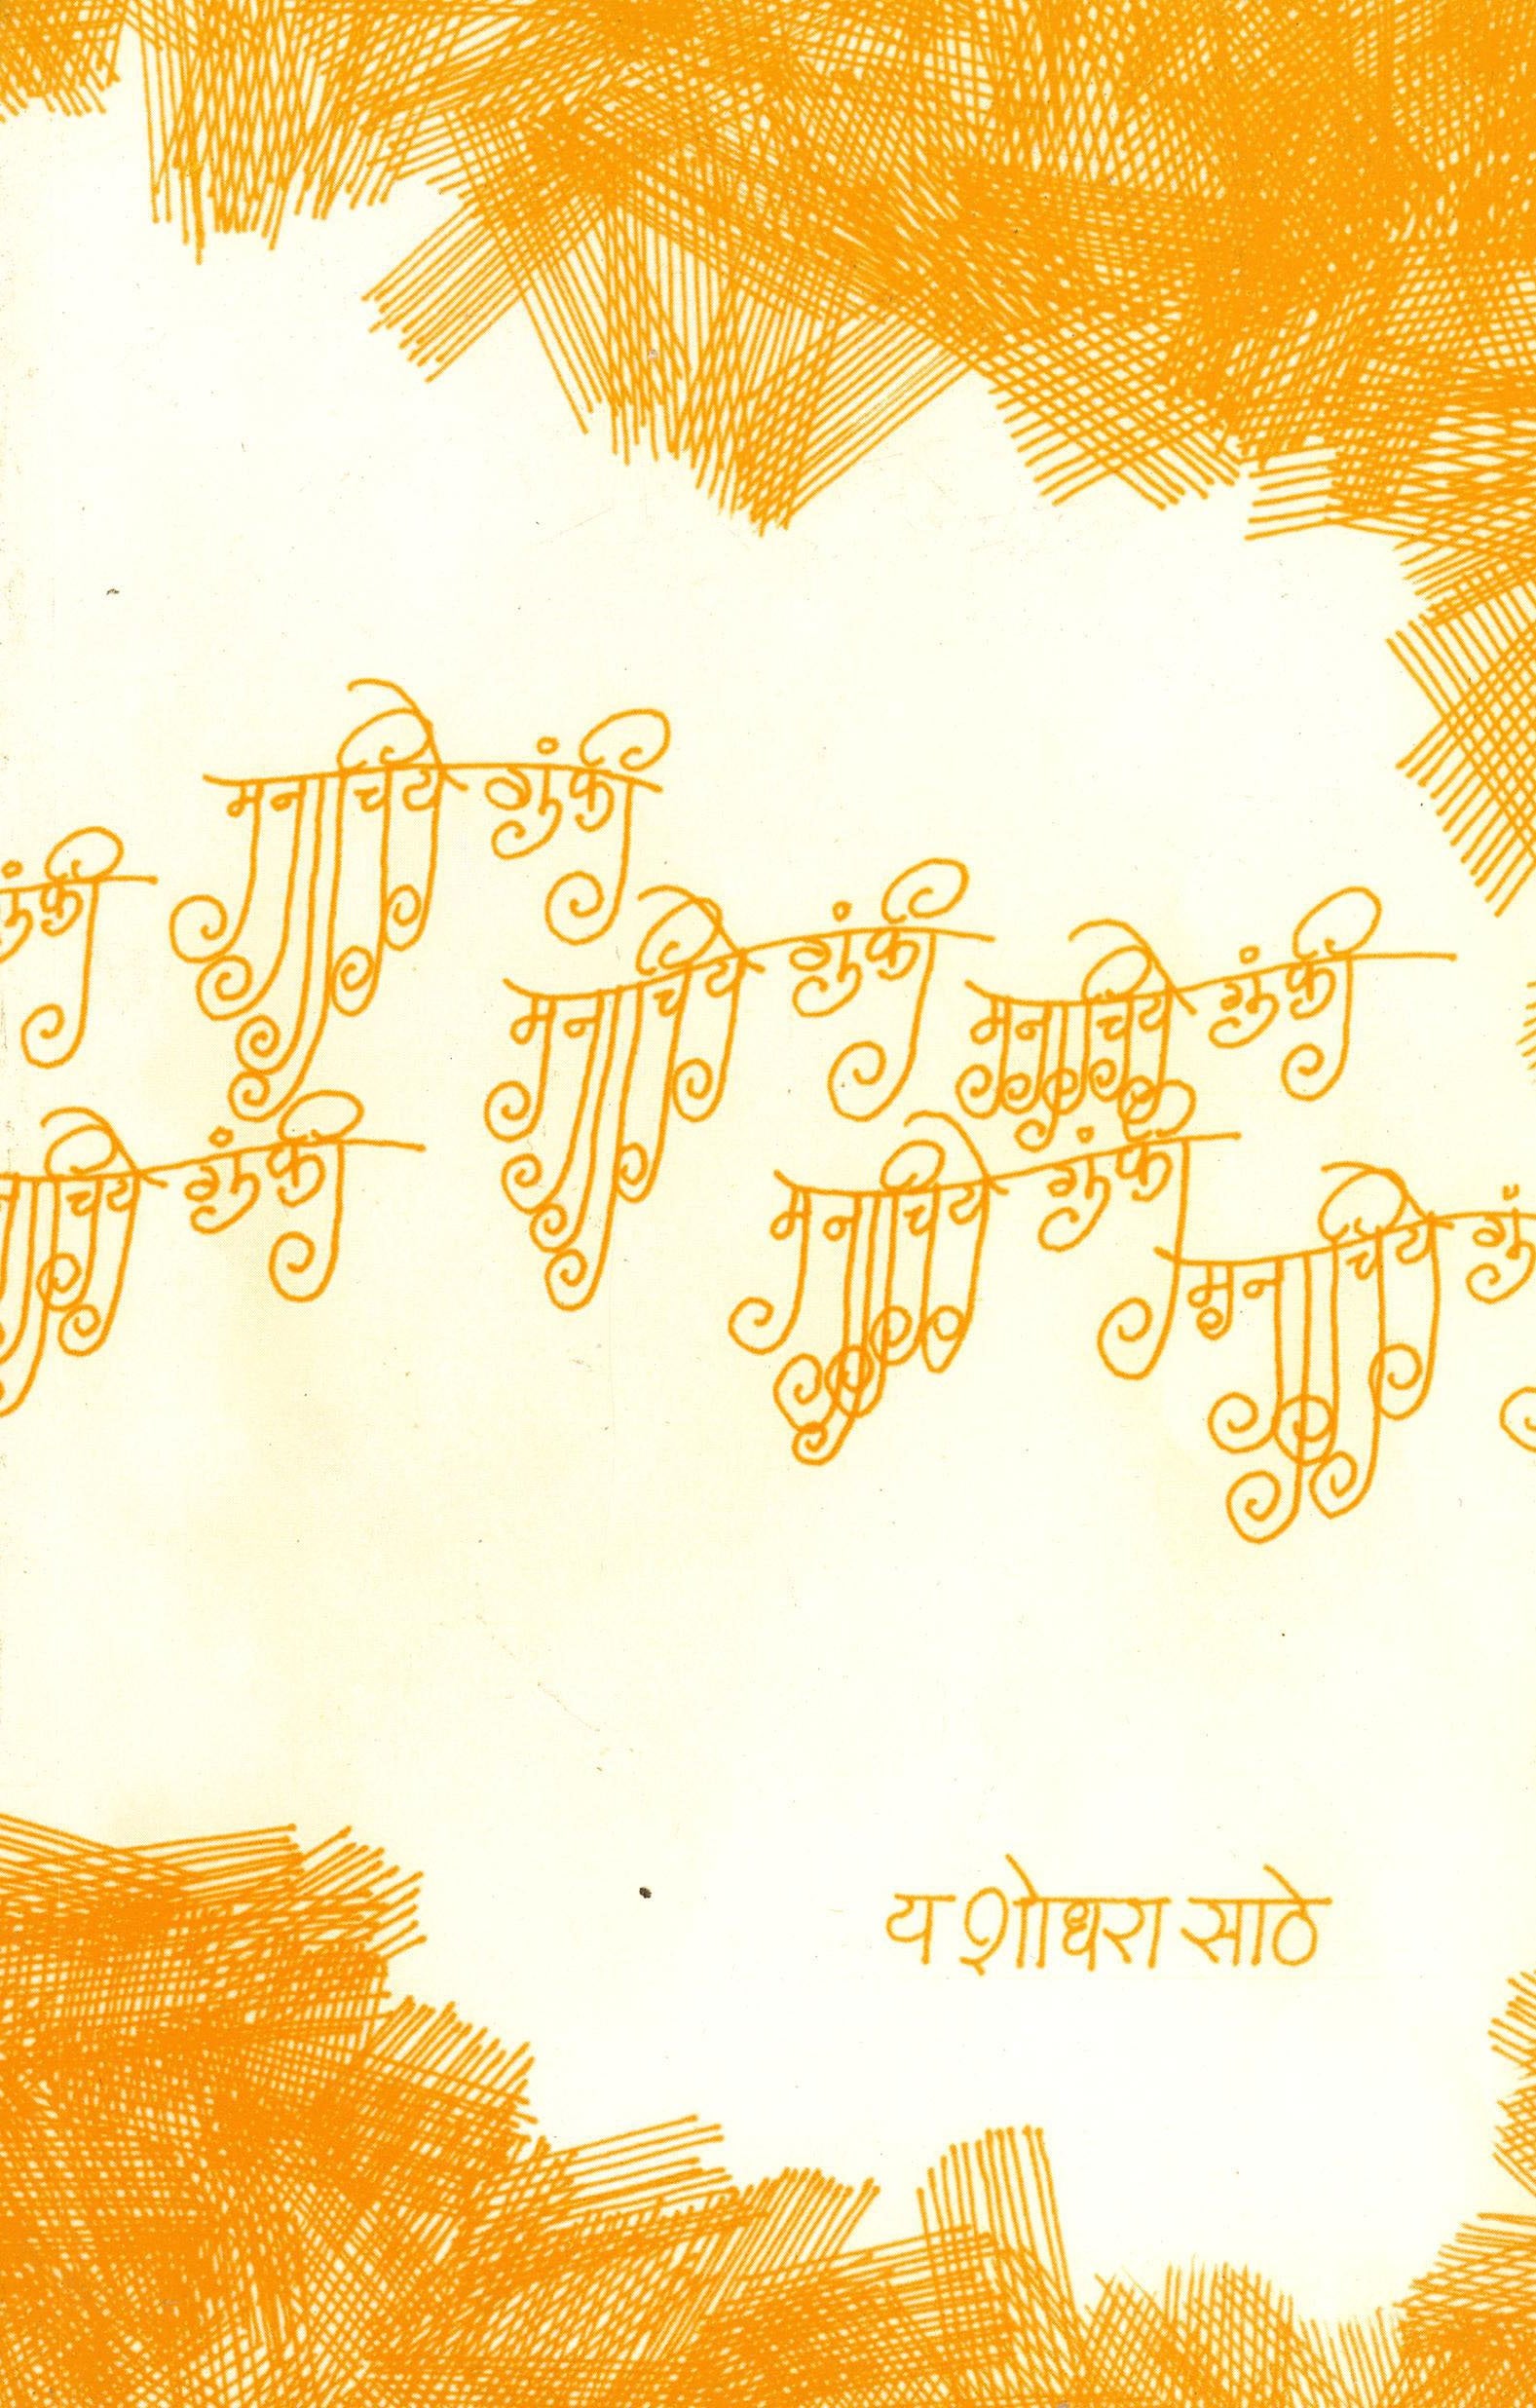 मनाचिये गुंफी
गुंफी
मनाचिये गुंफी
मनाचिये गुंफी
मनाचिये गुंफी
मनाचिये गुंफी
मनाचिये गुं
यशोधरा साठे